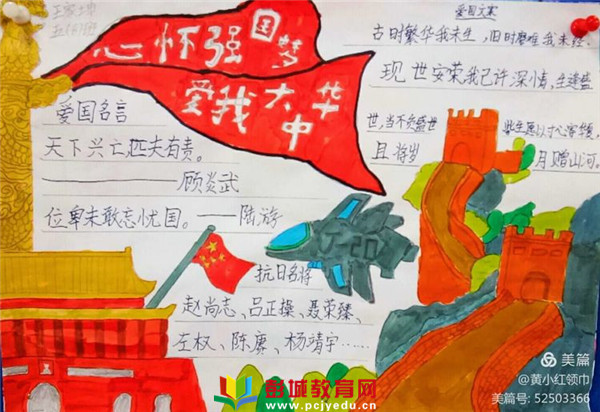 心怀强国梦
爱我大中华
爱国文案
古时繁华我未生，旧时磨难我未经.
现世安荣我已许深情，生逢盛
世，当不负盛世 此生愿以寸心寄华夏，
且将岁 月赠山河。
爱国名言
天下兴亡匹夫有责。
——顾炎武
位卑未敢忘忧国。——陆游
J-20
抗日名将
赵尚志、吕正操、聂荣臻、
左权、陈赓、杨靖宇……
彭城教育网
www.pcjyedu.cn
美篇
@黄小红领巾
美篇号: 52503366